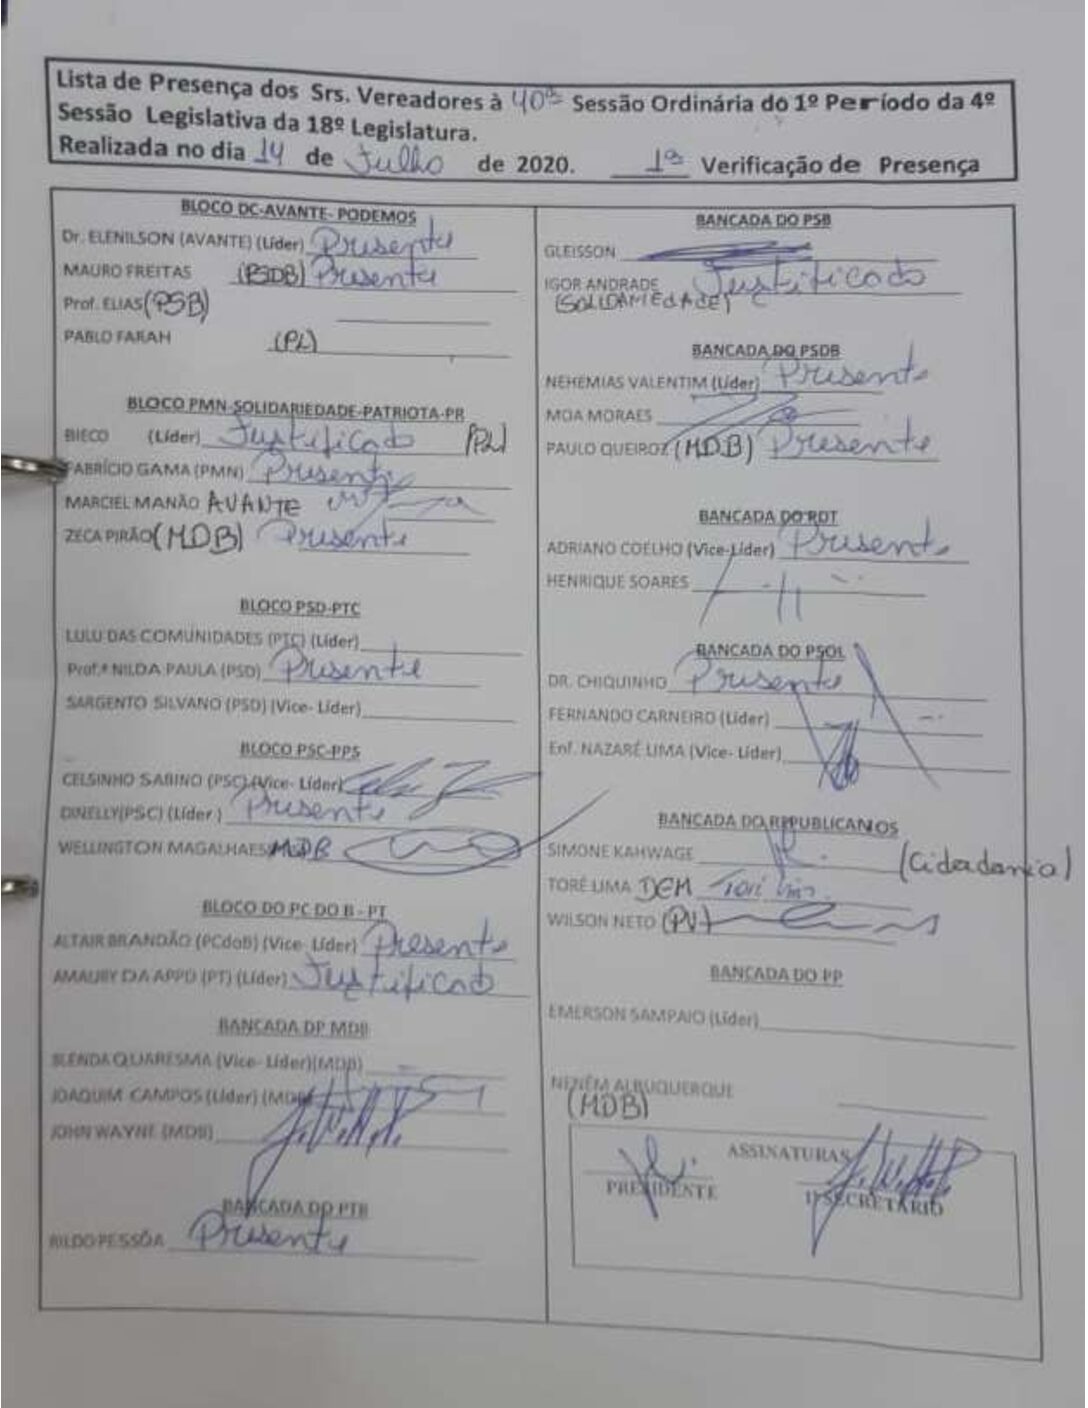 Lista de Presença dos Srs. Vereadores à 40ª Sessão Ordinária do 1º Período da 4º
Sessão Legislativa da 18º Legislatura.
Realizada no dia 14 de Julho de 2020. 1ª Verificação de Presença
BLOCO DC-AVANTE- PODEMOS
Dr. ELENILSON (AVANTE) (Líder) Presente
MAURO FREITAS (PSDB) Presente
Prof. ELIAS (PSB)
PABLO FARAH (PL)
BLOCO PMN-SOLIDARIEDADE-PATRIOTA-PR
BIECO (Líder) Justificado (PL)
FABRÍCIO GAMA (PMN) Presente
MARCIEL MANÃO AVANTE
ZECA PIRÃO (MDB) Presente
BLOCO PSD-PTC
LULU DAS COMUNIDADES (PTC) (Líder)
Prof.ª NILDA PAULA (PSD) Presente
SARGENTO SILVANO (PSD) (Vice- Líder)
BLOCO PSC-PPS
CELSINHO SABINO (PSC) (Vice- Líder)
DINELLY(PSC) (Líder ) Presente
WELLINGTON MAGALHAES MDB
BLOCO DO PC DO B - PT
ALTAIR BRANDÃO (PCdoB) (Vice- Líder) Presente
AMAURY DA APPD (PT) (Líder) Justificado
BANCADA DP MDB
BLENDA QUARESMA (Vice- Líder)(MDB)
JOAQUIM CAMPOS (Líder) (MDB)
JOHN WAYNE (MDB)
BANCADA DO PTB
RILDO PESSÔA Presente
BANCADA DO PSB
GLEISSON
IGOR ANDRADE Justificado
(SOLIDARIEDADE)
BANCADA DO PSDB
NEHEMIAS VALENTIM (Líder) Presente
MOA MORAES
PAULO QUEIROZ (MDB) Presente
BANCADA DO PDT
ADRIANO COELHO (Vice-Líder) Presente
HENRIQUE SOARES
BANCADA DO PSOL
DR. CHIQUINHO Presente
FERNANDO CARNEIRO (Líder)
Enf. NAZARÉ LIMA (Vice- Líder)
BANCADA DO REPUBLICANOS
SIMONE KAHWAGE (Cidadania)
TORÉ LIMA DEM Toré Lima
WILSON NETO (PV)
BANCADA DO PP
EMERSON SAMPAIO (Líder)
NENÉM ALBUQUERQUE
(MDB)
ASSINATURAS
PRESIDENTE
1º SECRETÁRIO